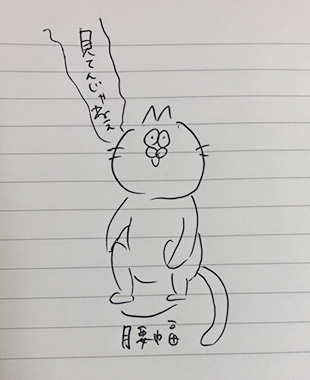 見てんじゃねぇ
腰幅